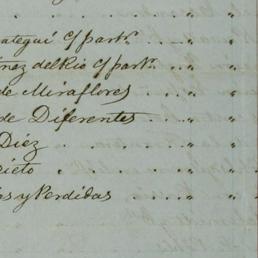 ategui c/ part.
nez del Rio c/ part.
de Miraflores
de Diferentes
Diez
ieto
as y Perdidas